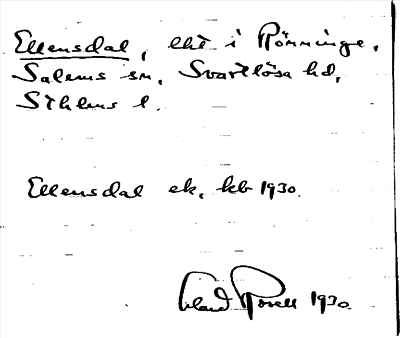 Ellensdal, lht i Rönninge,
Salems sn, Svartlösa hd,
Sthlms l.
Ellensdal ek, kb 1930.
Erland Rosell 1930.